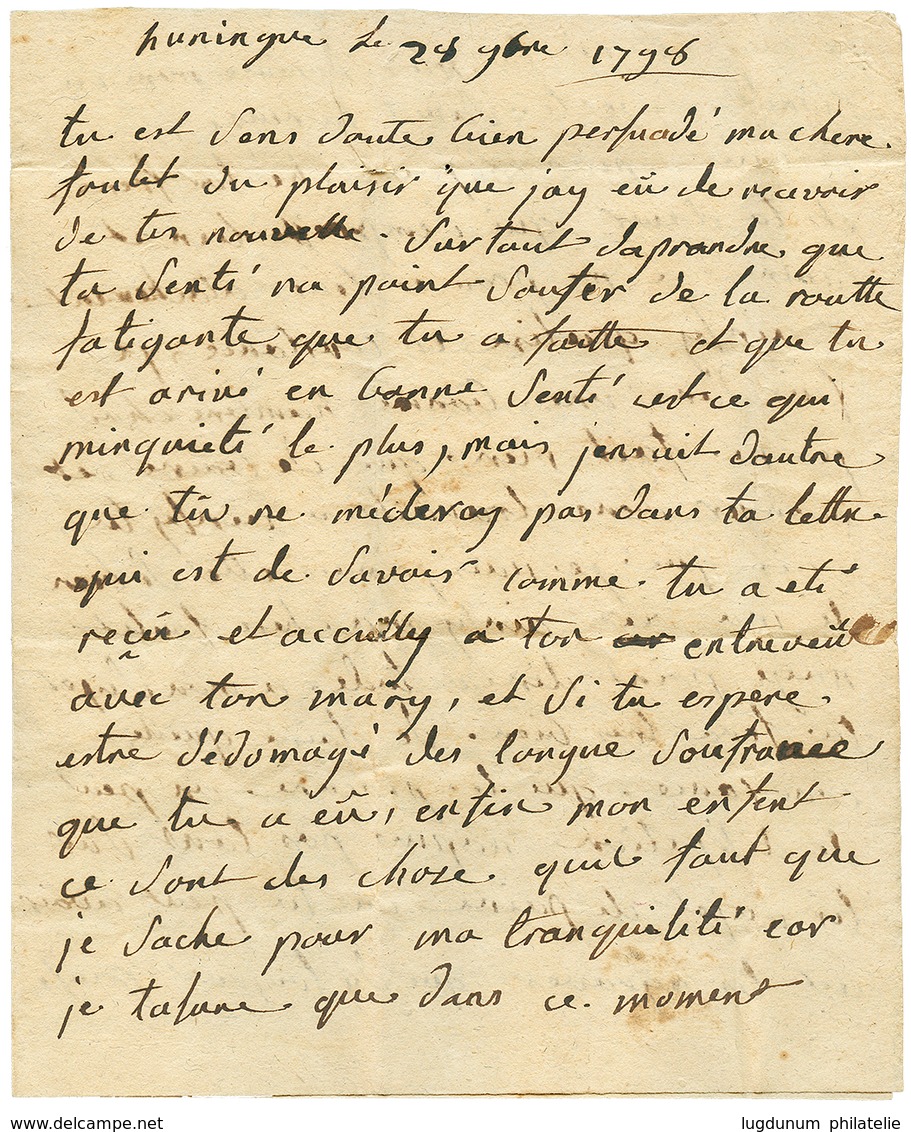 huningue le 28 9bre 1798
tu est sens doute bien persuadé ma chere
du plaisir que jay eü de recevoir
de tes nouvelle. sur tout daprandre que
ta senté na point soufer de la routte
fatigante que tu a faitte et que tu
est arivé en bonne senté cest ce qui
minquieté le plus, mais jen ait dautre
que tü ne pas dans ta lettre
qui est de savoir comme tu a eté
reçü et accuilly a ton entreveü
avec ton mary, et si tu espere
estre dédomagé des longue soufrance
que tu a eü, enfin mon enfent
ce sont des chose quil faut que
je sache pour ma tranquilité car
je tasure que dans ce moment
www.delcampe.net
lugdunum philatelie